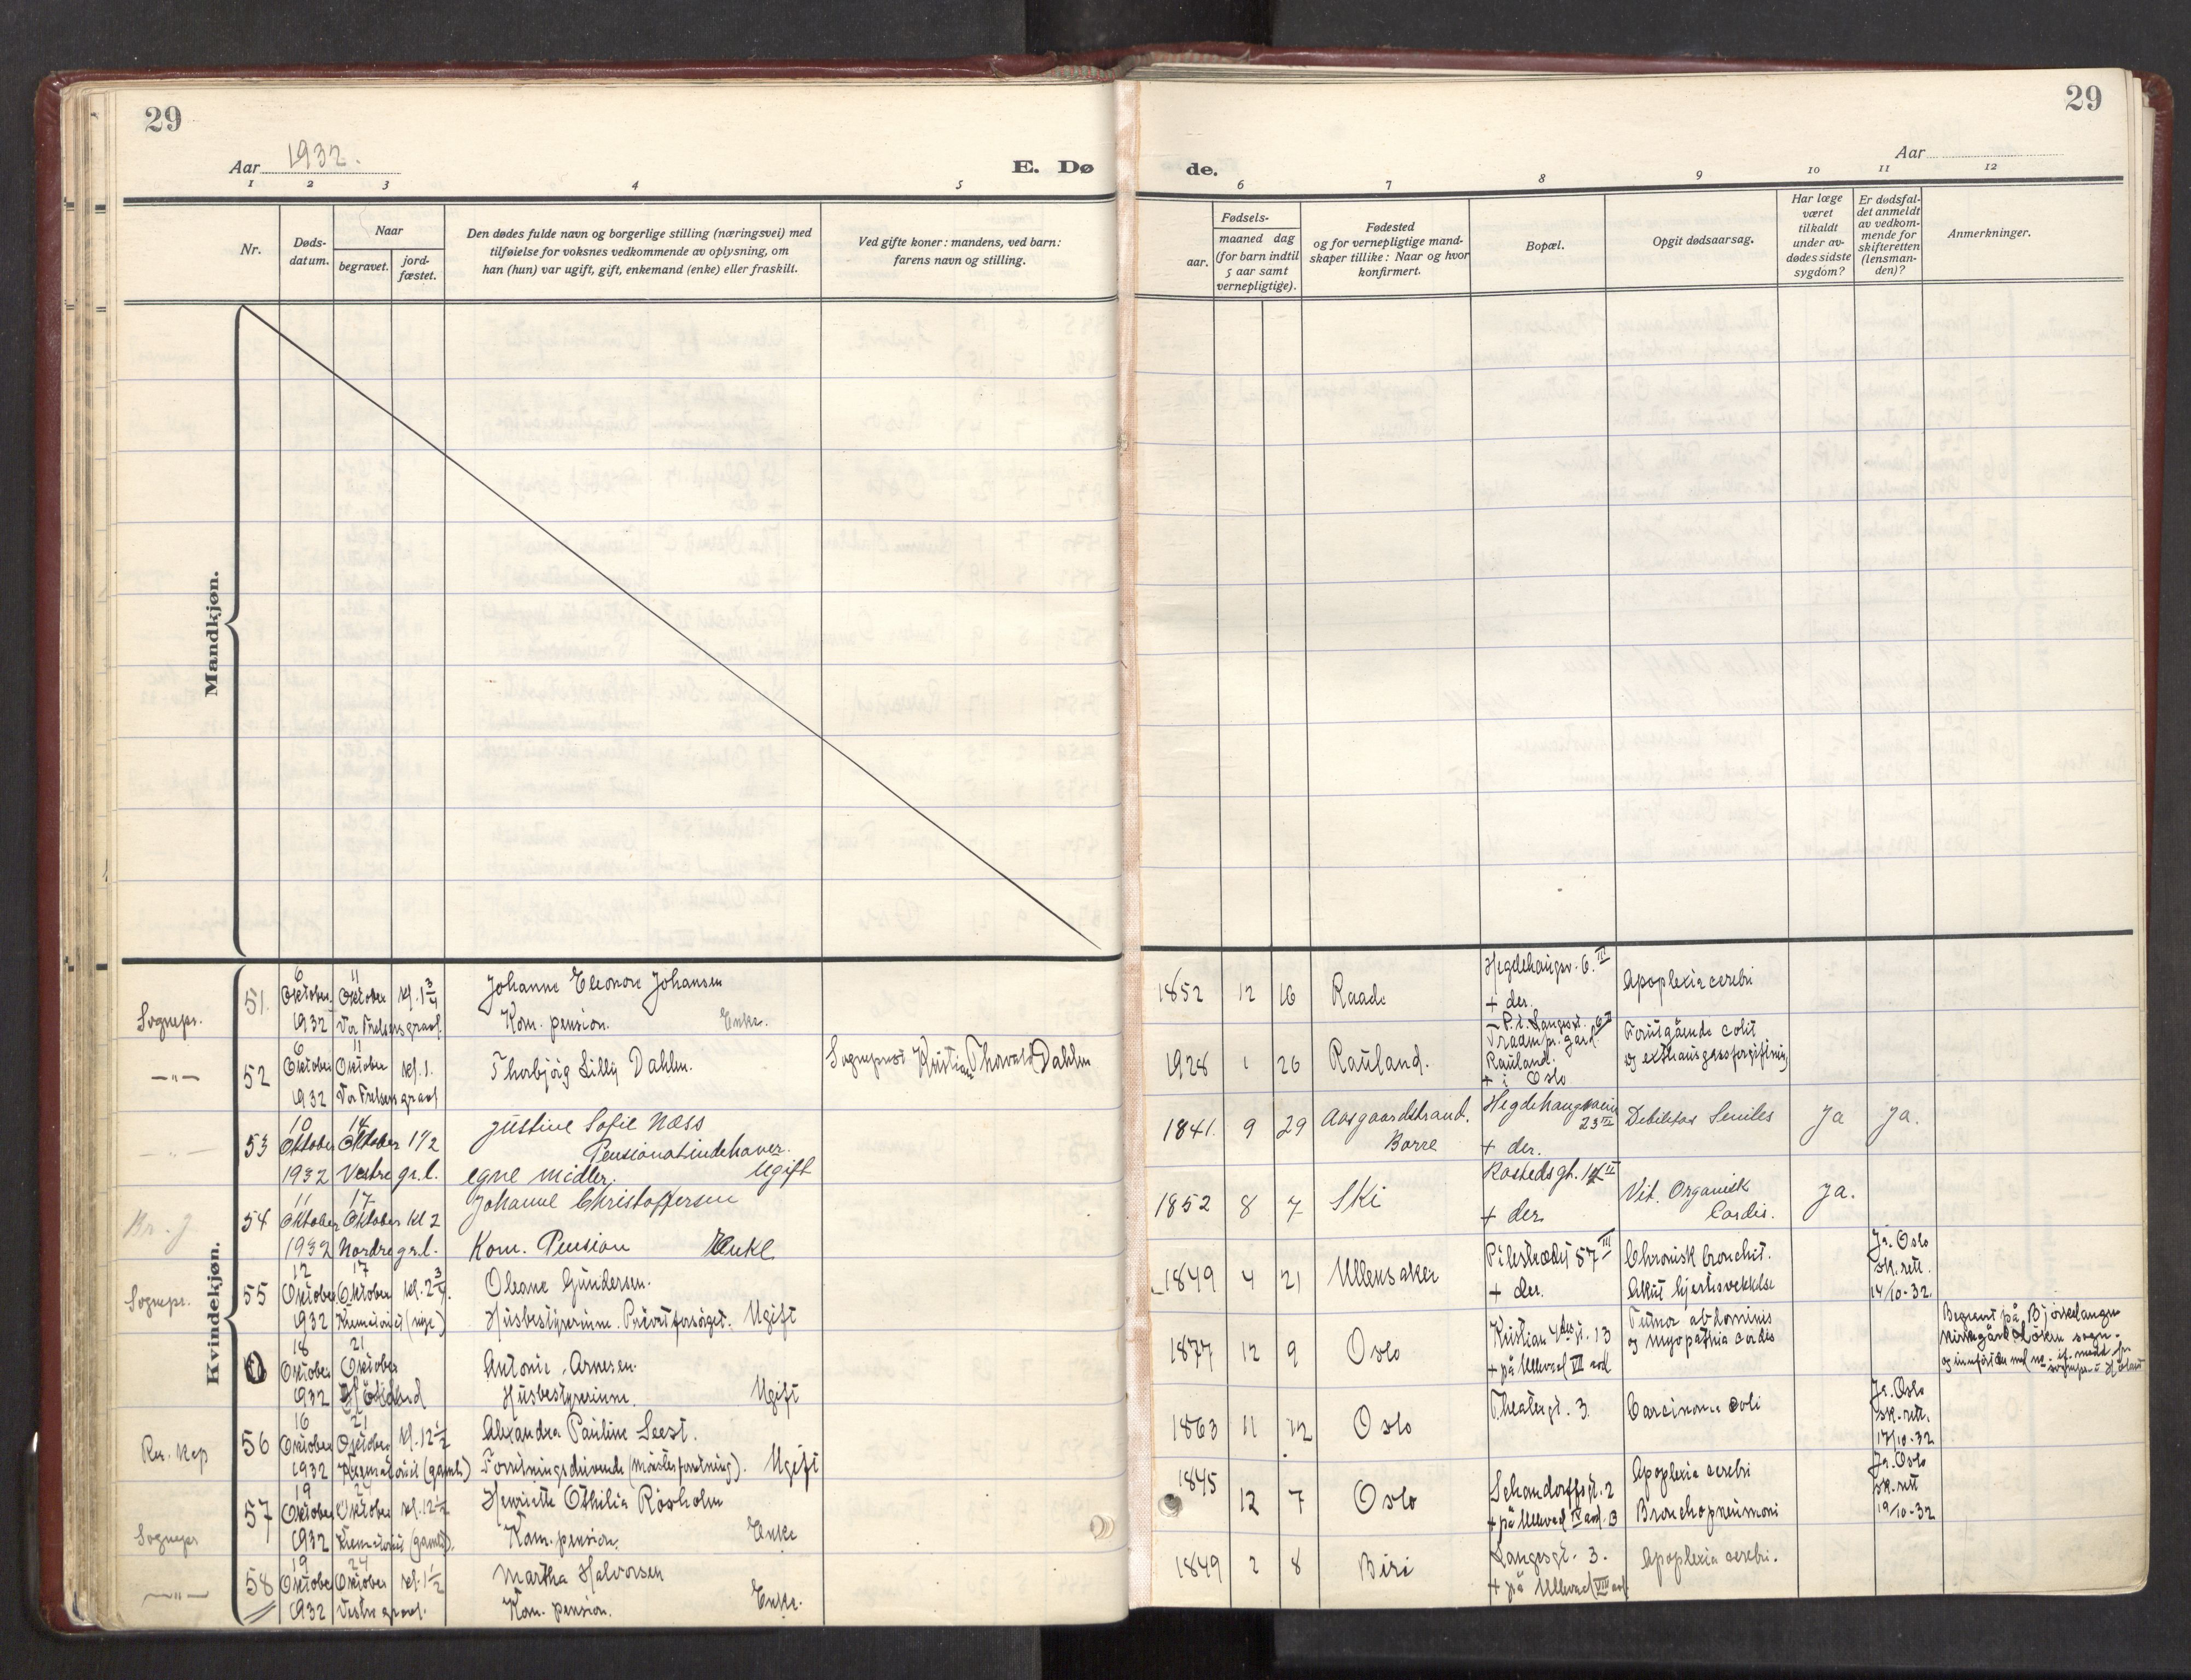 29
29
Aar 1932.
E. Dø
de.
Aar
1 2 3 4 5
6 7 8 9 10 11 12
Nr.
Døds-
datum.
Naar
begravet.
jord-
fæstet.
Den dødes fulde navn og borgerlige stilling (næringsvei) med
tilføielse for voksnes vedkommende av oplysning, om
han (hun) var ugift, gift, enkemand (enke) eller fraskilt.
Ved gifte koner: mandens, ved barn:
farens navn og stilling.
Fødsels-
aar.
maaned dag
(for barn indtil
5 aar samt
vernepligtige).
Fødested
og for vernepligtige mand-
skaper tillike: Naar og hvor
konfirmert.
Bopæl.
Opgit dødsaarsag.
Har læge
været
tilkaldt
under av-
dødes sidste
sygdom?
Er dødsfal-
det anmeldt
av vedkom-
mende for
skifteretten
(lensman-
den)?
Anmerkninger.
Mandkjøn.
Kvindekjøn.
Sognepr.
51.
6 Oktober 1932
11 Oktober kl. 1 3/4
Vor Frelsers gravl.
Johanne Eleonore Johansen
Kom. pension. Enke.
1852 12 16
Raade
Hegdehaugsv. 6. II
+ der.
Apoplexia cerebri
—"—
52
6 Oktober 1932
11 Oktober kl. 1.
Vor Frelsers gravl
Thorbjörg Lilly Dahlen.
Sogneprest Kristian Thorvald Dahlen
1928 1 26
Rauland.
P.t. Langesgt.
Rauland.
+ i Oslo
Forutgående colit
og exthausgassforgiftning
—"—
53
10 Oktober 1932
14 Oktober 1 1/2
Vestre gr.l.
Justine Sofie Næss
Pensionatindehaver.
egne midler. Ugift
1841. 9 29
Aasgaardstrand.
Borre
Hegdehaugsveien
23 III
+ der.
Debilitas Seniles
Ja
Ja.
Br. J
54
11 Oktober 1932
17 Oktober kl 2
Nordre gr.l.
Johanne Christoffersen
Kom. Pension Enke
1852 8 7
Ski
Rostedsgt. 14 II
+ der.
Vit. Organisk
Cordis.
Ja.
Sognepr.
55
12 Oktober 1932
17 Oktober kl. 2 3/4.
Krematoriet (nye)
Oleane Gundersen.
Husbestyrerinne. Privat forsørget. Ugift
1849 4 21
Ullensaker
Pilestrædet 57 III
+ der.
Chronisk bronchit.
Akut hjertesvekkelse
Ja. Oslo
sk.rett.
14/10-32.
0
18 Oktober 1932
21 Oktober
Höland
Antonie Arnesen.
Husbestyrerinne. Ugift
1877 12 9
Oslo
Kristian 4des gt. 13
+ på Ullevaal VII avd
Tumor abdominis
og myopathia cordis
Begravet på Bjørkelangen
kirkegård Løken sogn.
og innført der med nr.
sognepr. i Höland
Res. kap
56
16 Oktober 1932
21 Oktober kl. 12 1/2
Krematoriet (gamle)
Alexandra Pauline Seest.
Forretningsdrivende (møteforretning). Ugift
1863 11 12
Oslo
Theatergt. 3.
Carcinoma coli
Ja. Oslo
sk.rett.
17/10-32
Sognepr
57
19 Oktober 1932
24 Oktober kl. 12 1/2
Krematoriet (gamle).
Henriette Othilia Roxholm
Kom. pension. Enke
1845 12 7
Oslo
Schandorffsgt. 2
+ på Ullevaal IV avd. B
Apoplexia cerebri
Bronchopneumoni
Ja. Oslo
sk.rett
19/10-32
—"—
58
19 Oktober 1932
24 Oktober kl. 1 1/2
Vestre gravl.
Martha Halvorsen
Kom. pension. Enke.
1849 2 8
Biri
Langesgt. 3.
+ på Ullevaal VIII avd.
Apoplexia cerebri.